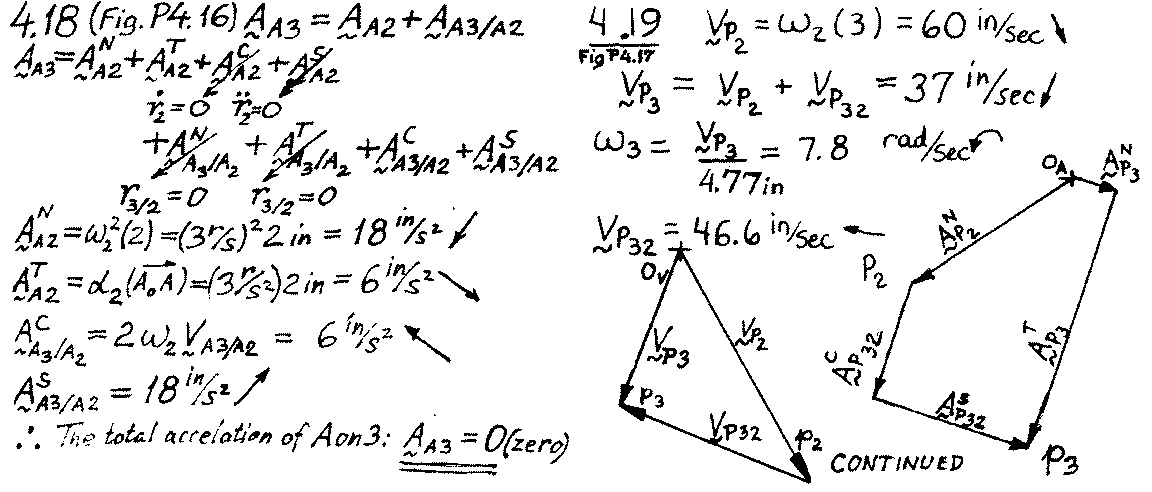 4.18 (Fig. P4.16) A_A3 = A_A2 + A_A3/A2
A_A3 = A^N_A2 + A^T_A2 + A^C_A2 + A^S_A2
ṙ_2 = 0 r̈_2 = 0
+ A^N_A3/A2 + A^T_A3/A2 + A^C_A3/A2 + A^S_A3/A2
r_3/2 = 0 r_3/2 = 0
A^N_A2 = ω_2^2(2) = (3 r/s)^2 2 in = 18 in/s^2 ↙
A^T_A2 = α_2(A_oA) = (3 r/s^2) 2 in = 6 in/s^2 ↘
A^C_A3/A2 = 2ω_2 V_A3/A2 = 6 in/s^2 ↖
A^S_A3/A2 = 18 in/s^2 ↗
∴ The total accelation of A on 3: A_A3 = 0 (zero)
4.19 V_P2 = ω_2(3) = 60 in/sec ↘
Fig P4.17
V_P3 = V_P2 + V_P32 = 37 in/sec ↙
ω_3 = V_P3 / 4.77 in = 7.8 rad/sec ↶
V_P32 = 46.6 in/sec ←
O_V
V_P3
V_P2
P3
V_P32
P2
O_A
A^N_P3
A^N_P2
P2
A^C_P32
A^T_P3
A^S_P32
P3
CONTINUED